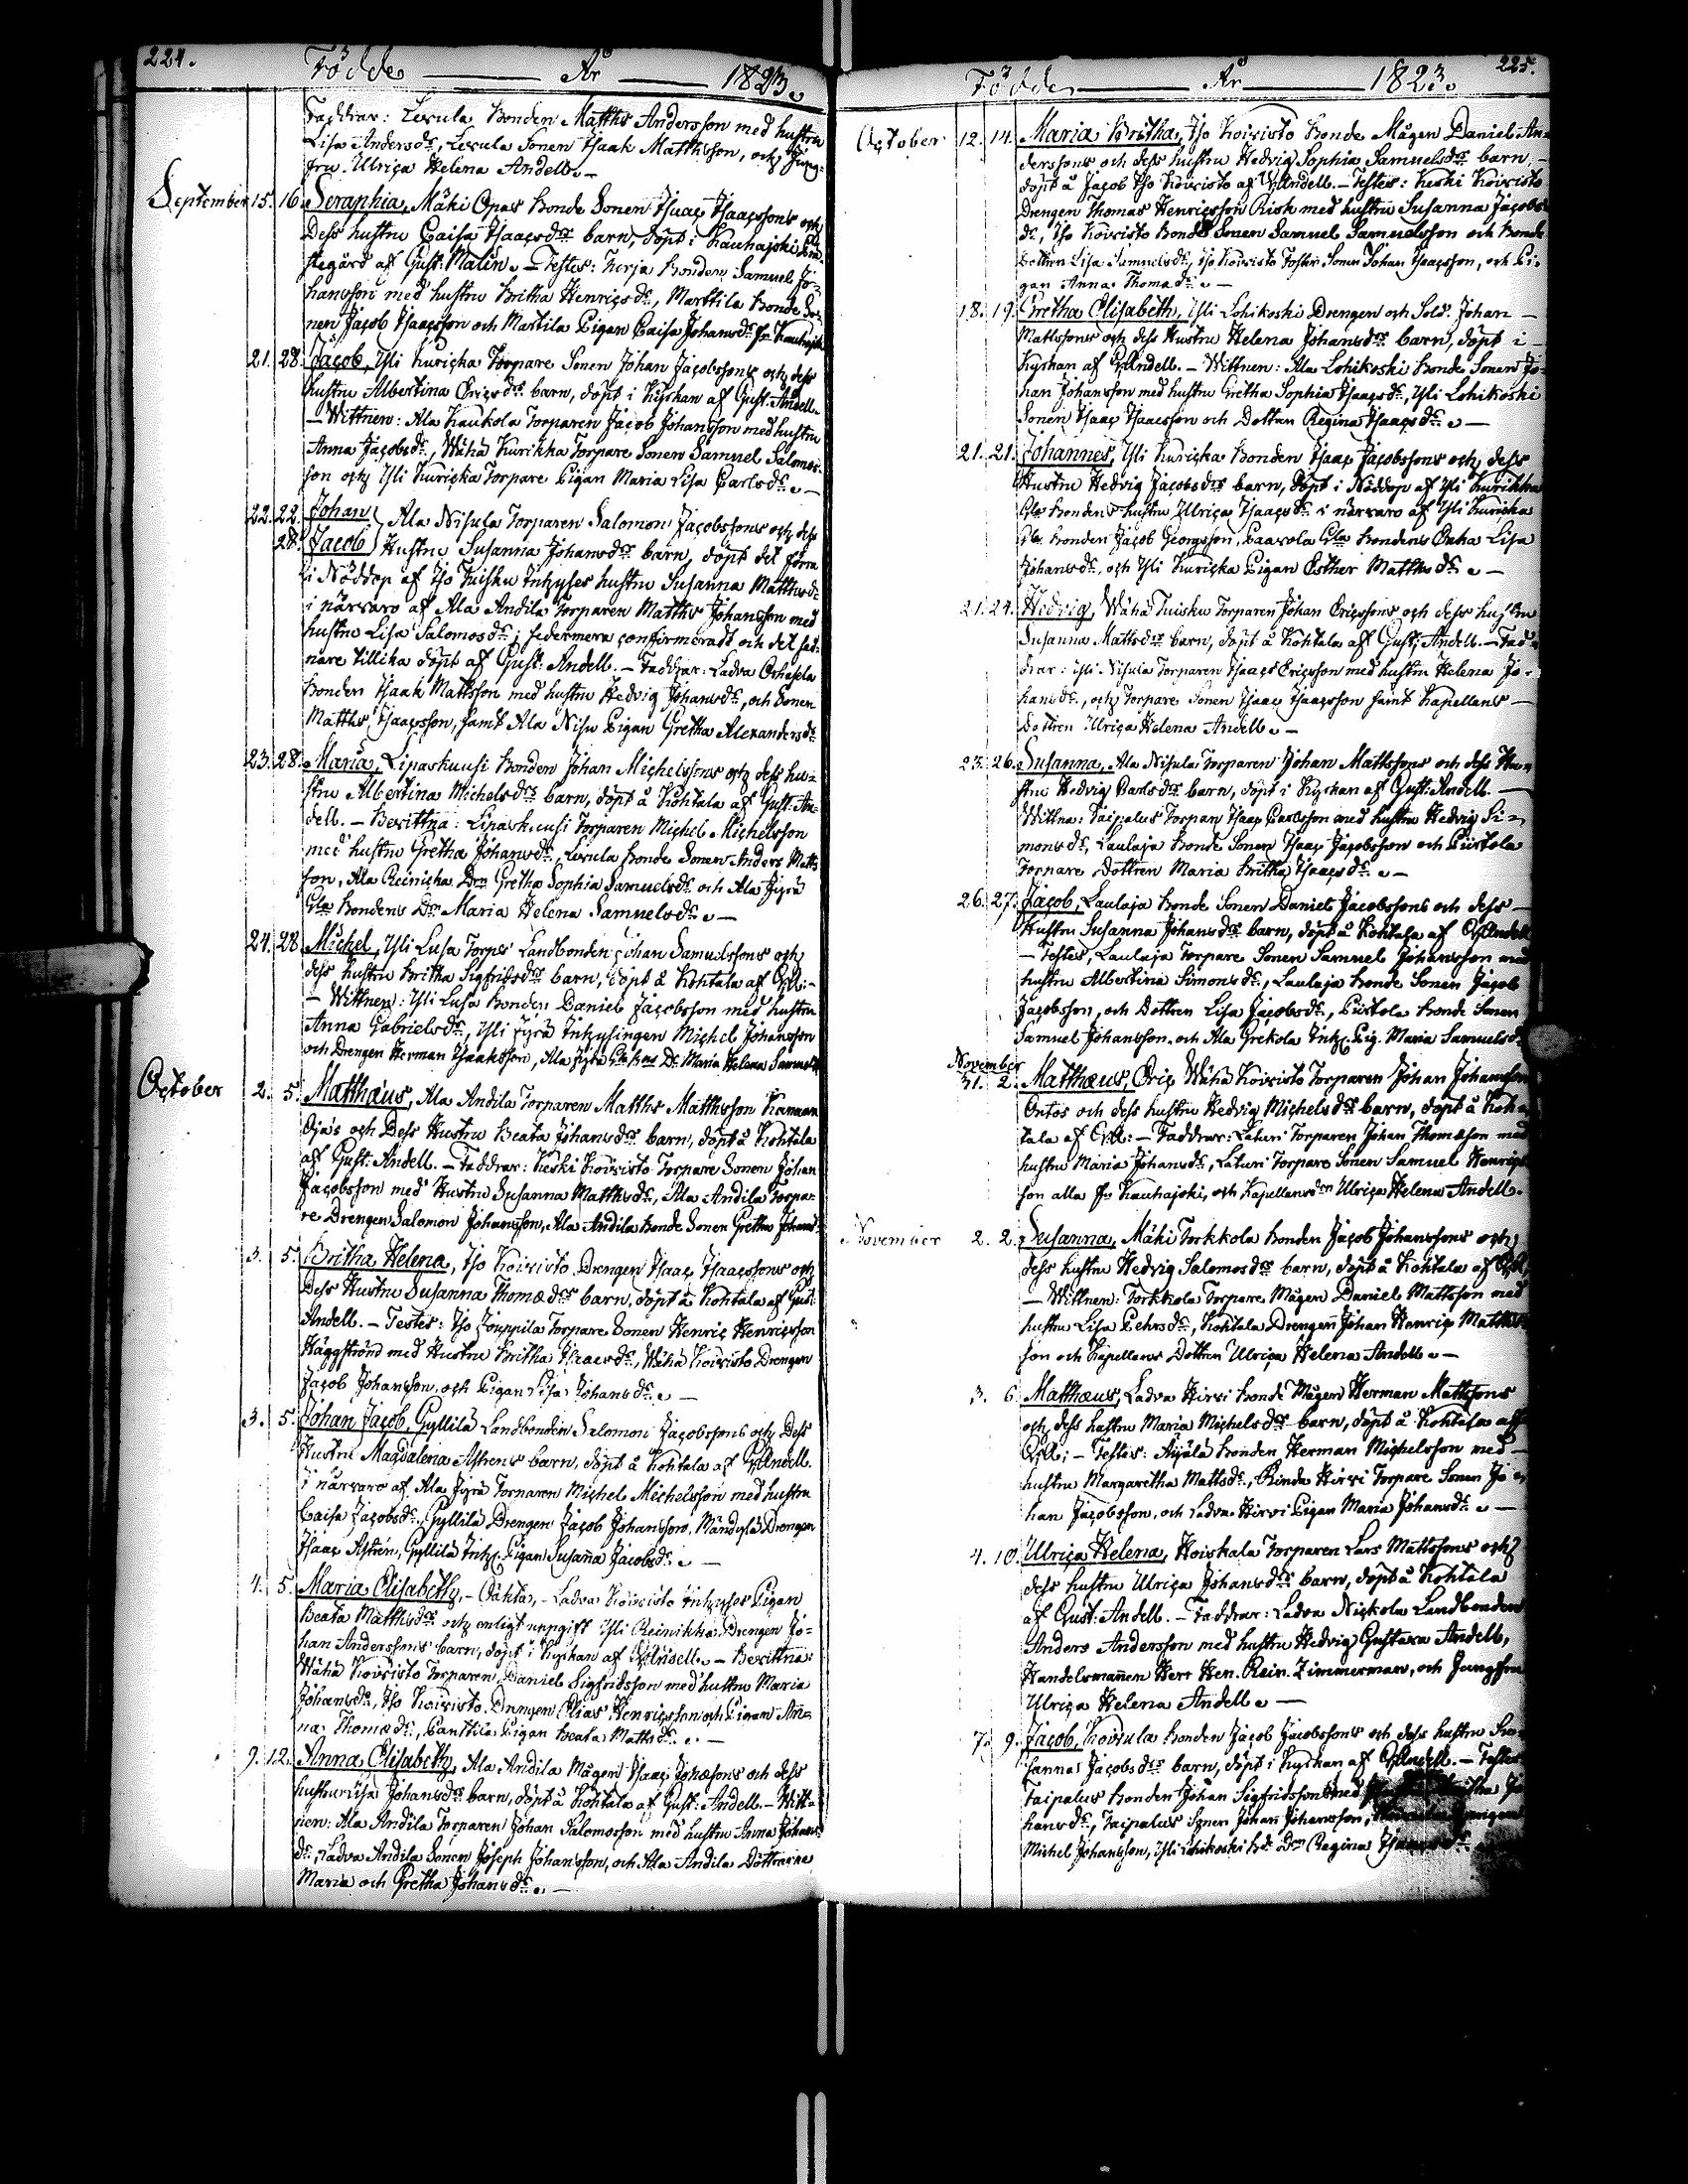 224.
Födde År 1823.
Faddrar: Levula Bonden Matths Andersson med hustru
Lisa Andersdr, Levula Sonen Isaak Matthsson, och Jung-
fru Ulrica Helena Andell. –
September 15. 16. Seraphia, Mäki Opas Bonde Sonen Isaac Isaacssons och
Dess hustru Caisa Isaacsdrs barn, döpt i Kauhajoki Prä-
stegård af Gust: Malin. – Testes: Kerja Bonden Samuel Jo-
hansson med hustru Britha Henricsdr, Marttila Bonde So-
nen Jacob Isaacsson och Martila Pigan Caisa Johansdr fr. Kauhajoki
21. 28. Jacob, Yli Kuricka Torpare Sonen Johan Jacobssons och dess
hustru Albertina Ericsdrs barn, döpt i Kyrkan af Gust: Andell.
– Wittnen: Ala Kaukola Torparen Jacob Johansson med hustru
Anna Jacobsdr, Wähä Kurikka Torpare Sonen Samuel Salomos-
son och Yli Kuricka Torpare Pigan Maria Lisa Carlsdr. –
22. 22. Johan } Ala Nisula Torparen Salomon Jacobssons och dess
28. Jacob } Hustru Susanna Johansdrs barn, döpt det förra
i Nöddop af Iso Tuisku Inhyses hustru Susanna Matthsdr
i närvaro af Ala Andila Torparen Matths Johansson med
hustru Lisa Salomosdr; sedermera confirmeradt och det sed-
nare tillika döpt af Gust: Andell. – Faddrar: Ladva
Bonden Isaak Mattsson med hustru Hedvig Johansdr, och Sonen
Matths Isaacsson, samt Ala Nisu Pigan Gretha Alexandersdr
23. 28. Maria, Lipaskuusi Bonden Johan Michelssons och dess hu-
stru Albertina Michelsdrs barn, döpt å Kohtala af Gust: An-
dell. – Bevittna: Lipaskuusi Torparen Michel Michelsson
med hustru Gretha Johansdr, Levula Bonde Sonen Anders Matts
son, Ala Reinicka Drn Gretha Sophia Samuelsdr och Ala Jyrä
Gla Bondens Dr Maria Helena Samuelsdr. –
24. 28 Michel, Yli Lusa Torps Landbonden Johan Samuelssons och
dess hustru Britha Sigfridsdrs barn, döpt å Kohtala af G.A: –
– Wittnen: Yli Lusa Bonden Daniel Jacobsson med hustru
Anna Gabrielsdr, Yli Jyrä Inhysingen Michel Johansson
och Drengen Herman Isaaksson, Ala Jyrä Gla Bns Dr Maria Helena Samuelsdr
October 2. 5. Matthæus, Ala Andila Torparen Matths Matthsson
Ojas och Dess Hustru Beata Johansdrs barn, döpt å Kohtala
af Gust: Andell. – Faddrar: Keski Koivisto Torpare Sonen Johan
Jacobsson med Hustru Susanna Matthsdr, Ala Andila Torpa-
re Drengen Salomon Johansson, Ala Andila Bonde Sonen Gretha Johansdr
3. 5. Britha Helena, Iso Koivisto Drengen Isaac Isaacssons och
Dess Hustru Susanna Thomædrs barn, döpt å Kohtala af Gust:
Andell. – Testes: Iso Jouppila Torpare Sonen Henric Henricsson
Häggström med Hustru Britha Isaacsdr, Wähä Koivisto Drengen
Jacob Johansson, och Pigan Lisa Johansdr. –
3. 5. Johan Jacob, Gyllilä Landbonden Salomon Jacobssons och Dess
Hustru Magdalena Astrens barn, döpt å Kohtala af G. Andell.
i närvaro af Ala Jyrä Torparen Michel Michelsson med hustru
Caisa Jacobsdr, Gyllilä Drengen Jacob Johansson, Mäntylä Drengen
Isaac Astrén, Gyllilä Inh. Pigan Susanna Jacobsdr. –
4. 5. Maria Elisabeth, – Oäkta, – Ladva Koivisto Inhyses Pigan
Beata Matthsdrs och enligt uppgift Yli Reinikka Drengen Jo-
han Anderssons barn, döpt i Kyrkan af G: Andell. – Bevittna:
Wähä Koivisto Torparen Daniel Sigfridsson med hustru Maria
Johansdr, Iso Koivisto Drengen Elias Henricsson och Pigan An-
na Thomædr, Panttila Pigan Beata Mathsdr. –
9. 12. Anna Elisabeth, Ala Andila Mågen Isaac Jonæsons och dess
hustru Lisa Johansdrs barn, döpt å Kohtala af Gust: Andell. – Witt-
nen: Ala Andila Torparen Johan Salomosson med hustru Anna Johans
dr, Ladva Andila Sonen Joseph Johansson, och Ala Andila Döttrarne
Maria och Gretha Johansdr. –
225.
Födde År 1823.
October 12. 14. Maria Britha, Iso Koivisto Bonde Mågen Daniel An-
derssons och dess hustru Hedvig Sophia Samuelsdrs barn, –
döpt å Jacob Iso Koivisto af G. Andell. – Testes: Keski Koivisto
Drengen Thomas Henricsson Risk med hustru Susanna Jacobs
dr, Iso Koivisto Bonde Sonen Samuel Samuelsson och Bonde
Dottren Lisa Samuelsdr, Iso Koivisto Foster Sonen Johan Isaacsson, och Pi-
gan Anna Thomædr. –
18. 19. Gretha Elisabeth, Yli Lohikoski Drengen och Sold. Johan –
Mattssons och dess Hustru Helena Johansdrs barn, döpt i –
Kyrkan af G. Andell. – Wittnen: Ala Lohikoski Bonde Sonen Jo-
han Johansson med hustru Gretha Sophia Isaacsdr, Yli Lohikoski
Sonen Isaac Isaacsson och Dottren Regina Isaacsdr. –
21. 21. Johannes, Yli Kuricka Bonden Isaac Jacobssons och dess
Hustru Hedvig Jacobsdrs barn, döpt i Nöddop af Yli Kurikka
Gla Bondens hustru Ulrica Isaacsdr i närvaro af Yli Kuricka
Gla Bonden Jacob Georgsson, Paavola Gla Bondens Enka Lisa
Johansdr, och Yli Kuricka Pigan Esther Matthsdr. –
21. 24. Hedvig, Wähä Tuisku Torparen Johan Ericssons och dess hustru
Susanna Mattsdrs barn, döpt å Kohtala af Gust: Andell. – Fad-
drar: Yli Nisula Torparen Isaac Ericsson med hustru Helena Jo-
hansdr, och Torpare Sonen Isaac Isaacsson samt Kapellans –
Dottren Ulrica Helena Andell. –
23. 26. Susanna, Ala Nisula Torparen Johan Mattssons och dess Hu-
stru Hedvig Carlsdrs barn, döpt i Kyrkan af Gust: Andell. –
Wittna: Taipalus Torparn Isaac Carlsson med hustru Hedvig Si-
monsdr, Laulaja Bonde Sonen Isaac Jacobsson och Piirtola
Torpare Dottren Maria Britha Isaacsdr. –
26. 27. Jacob, Laulaja Bonde Sonen Daniels Jacobssons och dess –
Hustru Susanna Johansdrs barn, döpt å Kohtala af G. Andell
– Testes, Laulaja Torpare Sonen Samuel Johansson med
hustru Albertina Simonsdr, Laulaja Bonde Sonen Jacob
Jacobsson, och Dottren Lisa Jacobsdr, Piirtola Bonde Sonen
Samuel Johansson och Ala Grekola Inh. Pig. Maria Samuelsdr
November
31. 2. Matthæus, Wähä Koivisto Torparen Johan Johansson
Ontos och dess hustru Hedvig Michelsdrs barn, döpt å Koh-
tala af G.A: – Faddrar: Laturi Torparen Johan Thomæson med
hustru Maria Johansdr, Laturi Torpare Sonen Samuel Henrics
son alla fr. Kauhajoki, och Kapellansdrn Ulrica Helena Andell.
November 2. 2. Susanna, Mäki Torkkola Bonden Jacob Johanssons och
dess hustru Hedvig Salomosdrs barn, döpt å Kohtala af G.A.
– Wittnen: Torkkola Torpare Mågen Daniel Mattsson med
hustru Lisa Pehrsdr, Kohtala Drengen Johan Henric Matths-
son och Kapellans Dottren Ulrica Helena Andell. –
3. 6. Matthæus, Ladva Hirvi Bonde Mågen Herman Mattssons
och dess hustru Maria Michelsdrs barn, döpt å Kohtala af
G.A: – Testes: Äijälä Bonden Herman Michelsson med –
hustru Margaretha Mattsdr, Rinda Hirvi Torpare Sonen Jo-
han Jacobsson, och Ladva Hirvi Pigan Maria Johansdr. –
4. 10. Ulrica Helena, Koiskala Torparen Lars Mattssons och
dess hustru Ulrica Johansdrs barn, döpt å Kohtala
af Gust: Andell. – Faddrar: Ladva Nickola Landbonden
Anders Andersson med hustru Hedvig Gustava Andell,
Handelsmannen Herr Hen. Rein. Zimmerman, och Jungfru
Ulrica Helena Andell. –
7. 9. Jacob, Koivula Bonden Jacob Jacobssons och dess hustru Su-
sanna Jacobsdrs barn, döpt i Kyrkan af G. Andell. – Testes
Taipalus Bonden Johan Sigfridsson med Jo-
hansdr, Taipalus Sonen Johan Johansson, Drengen
Michel Johansson, Yli Lohikoski Bd. Drn Regina Isaacsdr